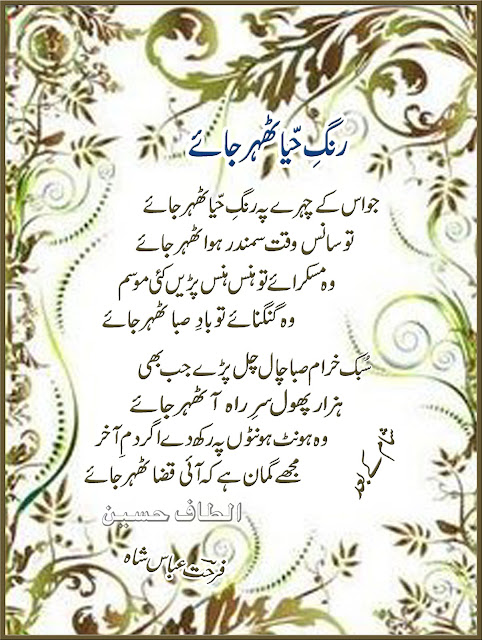 رنگِ حیّا ٹھہر جائے
جو اس کے چہرے پہ رنگِ حیّا ٹھہر جائے
تو سانس وقت سمندر ہوا ٹھہر جائے
وہ مسکرائے تو ہنس ہنس پڑیں کئی موسم
وہ گنگنائے تو بادِ صبا ٹھہر جائے
سُبک خرام صبا چال چل پڑے جب بھی
ہزار پھول سرِ راہ آ ٹھہر جائے
وہ ہونٹ ہونٹوں پہ رکھ دے اگر دمِ آخر
مجھے گمان ہے کہ آئی قضا ٹھہر جائے
شام کے بعد
الطاف حسین
فرحت عباس شاہ